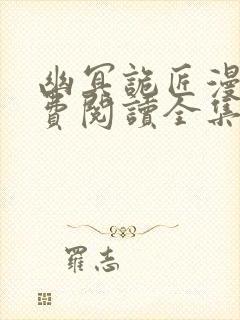 幽冥詭匠漫
費閱讀全集
羅志